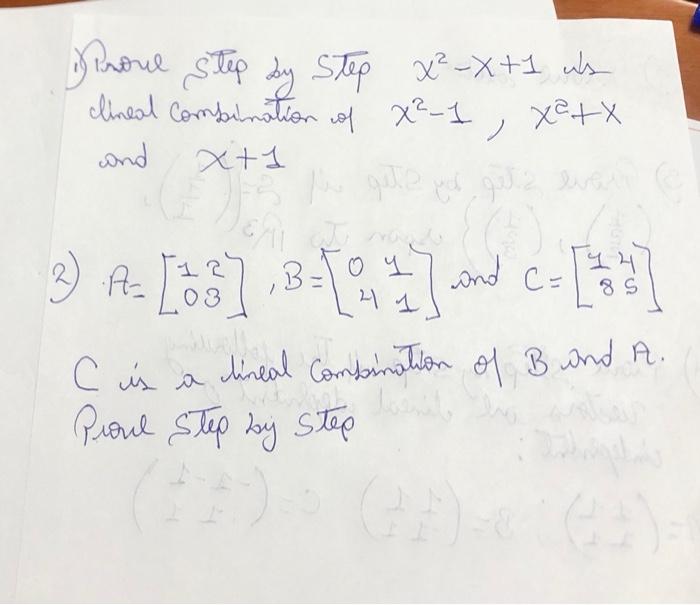 1) Prove step by step x²-x+1 is
lineal combination of x²-1, x²+x
and x+1
2) A= [1 2
0 3], B= [0 1
4 1] and C= [1 4
8 5]
C is a lineal combination of B and A.
Prove step by step